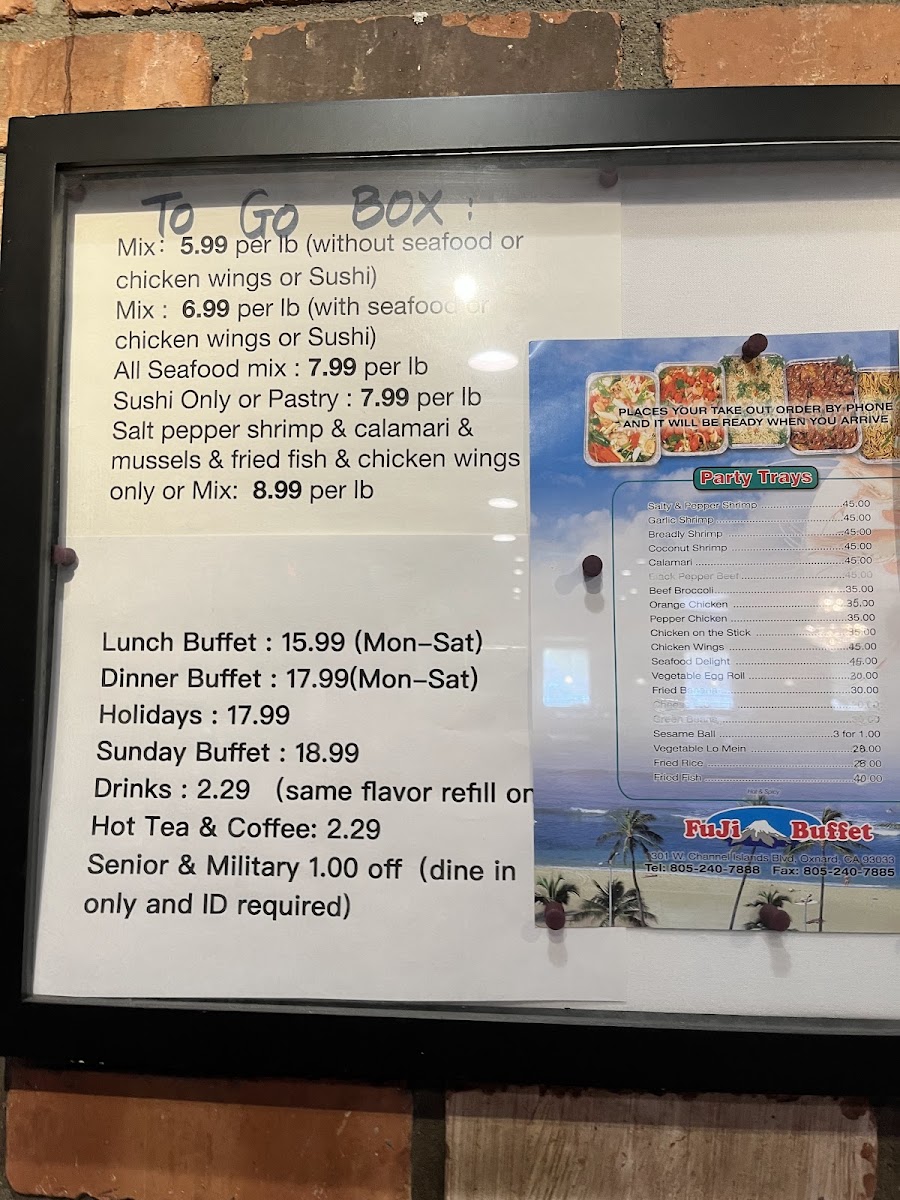 To Go Box :
Mix: 5.99 per lb (without seafood or
chicken wings or Sushi)
Mix : 6.99 per lb (with seafood or
chicken wings or Sushi)
All Seafood mix : 7.99 per lb
Sushi Only or Pastry : 7.99 per lb
Salt pepper shrimp & calamari &
mussels & fried fish & chicken wings
only or Mix: 8.99 per lb
Lunch Buffet : 15.99 (Mon-Sat)
Dinner Buffet : 17.99(Mon-Sat)
Holidays : 17.99
Sunday Buffet : 18.99
Drinks : 2.29 (same flavor refill
Hot Tea & Coffee: 2.29
Senior & Military 1.00 off (dine in
only and ID required)
PLACES YOUR TAKE OUT ORDER BY PHONE
AND IT WILL BE READY WHEN YOU ARRIVE
Party Trays
Salty & Pepper Shrimp 45.00
Garlic Shrimp 45.00
Breadly Shrimp 45.00
Coconut Shrimp 45.00
Calamari 45.00
Black Pepper Beef 45.00
Beef Broccoli 35.00
Orange Chicken 35.00
Pepper Chicken 35.00
Chicken on the Stick 35.00
Chicken Wings 45.00
Seafood Delight 45.00
Vegetable Egg Roll 30.00
Fried 30.00
Green
Sesame Ball 3 for 1.00
Vegetable Lo Mein 28.00
Fried Rice 28.00
Fried Fish 40.00
Hot & Spicy
FuJi Buffet
1301 W. Channel Islands Blvd, Oxnard, CA 93033
Tel: 805-240-7888 Fax: 805-240-7885